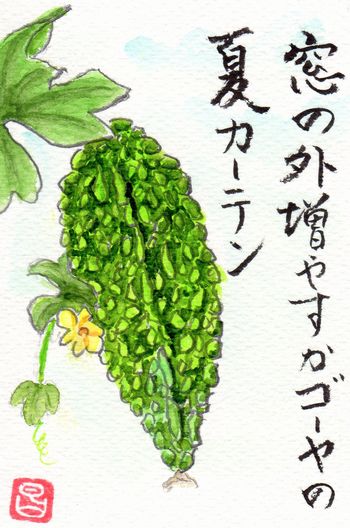 窓の外増やすかゴーヤの
夏カーテン